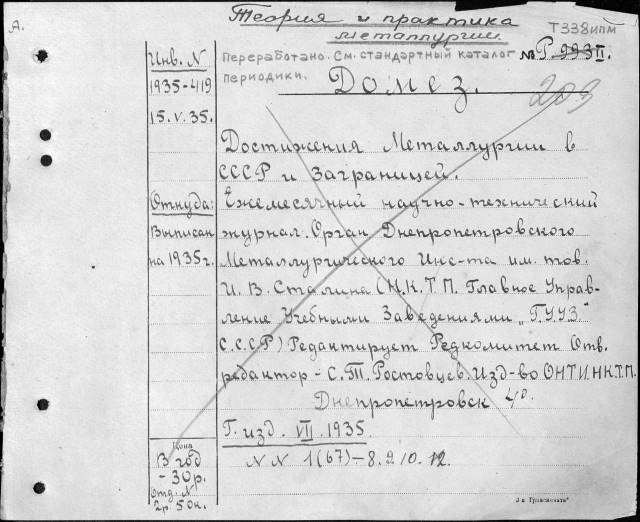 А.
Теория и практика
металлургии.
Т338ипм
Переработано. См. стандартный каталог
периодики.
№ Р 993 II.
Домез.
203
Инв. N
1935-419
15. V. 35.
Откуда:
Выписан
на 1935 г.
Достижения Металлургии в
СССР и Заграницей.
Ежемесячный научно-технический
журнал. Орган Днепропетровского
Металлургического Инс-та им. тов.
И. В. Сталина (Н.К.Т.П. Главное Управ-
ление Учебными Заведениями „Г.У.У.З"
С.С.С.Р) Редактирует Редкомитет Отв.
редактор - С. Т. Ростовцев. Изд-во ОНТИ.Н.К.Т.П.
Днепропетровск 4°.
Г. изд. VII. 1935
N N 1(67)-8. 2 10. 12.
Цена
В год
-30р.
Отд. N
2р 50к.
3-я Трансжелата